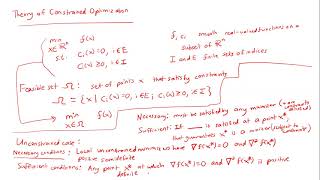 Theory of Constrained Optimization
min f(x)
x∈ℝⁿ
s.t. cᵢ(x)=0, i∈E
cᵢ(x)≥0, i∈I
f, cᵢ smooth real-valued functions on a
subset of ℝⁿ
I and E finite sets of indices
Feasible set Ω = set of points x that satisfy constraints
Ω = {x | cᵢ(x)=0, i∈E; cᵢ(x)≥0, i∈I}
min f(x)
x∈Ω
Necessary: must be satisfied by any minimizer
Sufficient: If is satisfied at a point x*,
that guarantees x* is a minimizer
Unconstrained case:
Necessary conditions: Local unconstrained minimizers have ∇f(x*)=0 and ∇²f(x*)
positive semidefinite
Sufficient conditions: Any point x* at which ∇f(x*)=0 and ∇²f(x*) is positive
definite